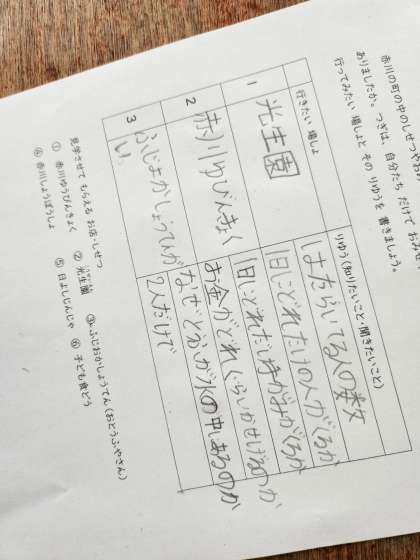 赤川の町の中のしせつやお
ありましたか。つぎは、自分たち だけで おみせ
行ってみたい 場しょと その りゆうを 書きましょう。
行きたい 場しょ
りゆう(知りたいこと・聞きたいこと)
1
光生園
はたらいてる人の数
1日にどれだけの人がくるか
2
赤川ゆびんきょく
1日にどれだけ手がみがくるか
お金がどれくらいかせげるのか
3
ふじよかしょうてんが
い
なぜとうふが水の中あるのか
2人だけで
見学させて もらえる お店・しせつ
① 赤川ゆうびんきょく ② 光生園 ③ ふじおかしょうてん(おとうふやさん)
④ 赤川しょうぼうしょ ⑤ 日よしじんじゃ ⑥ 子ども食どう